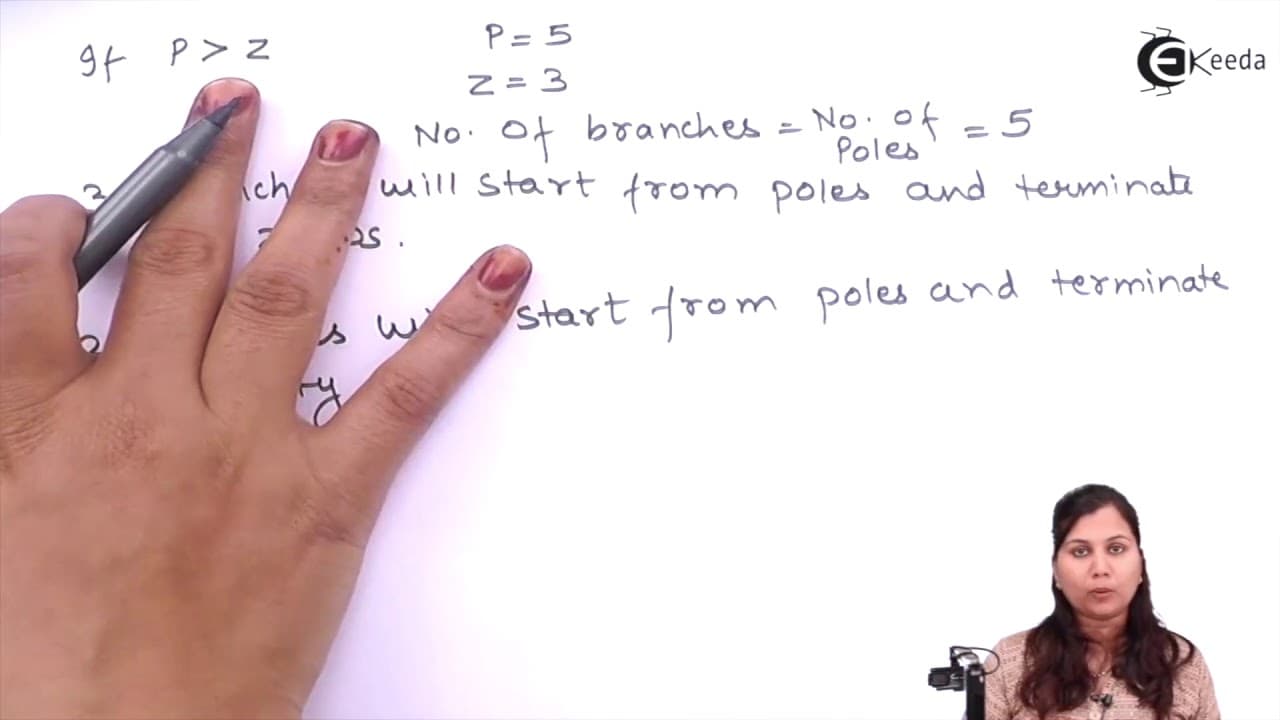 If P > Z
P = 5
Z = 3
No. Of branches = No. of Poles = 5
will start from poles and terminate
start from poles and terminate
EKeeda